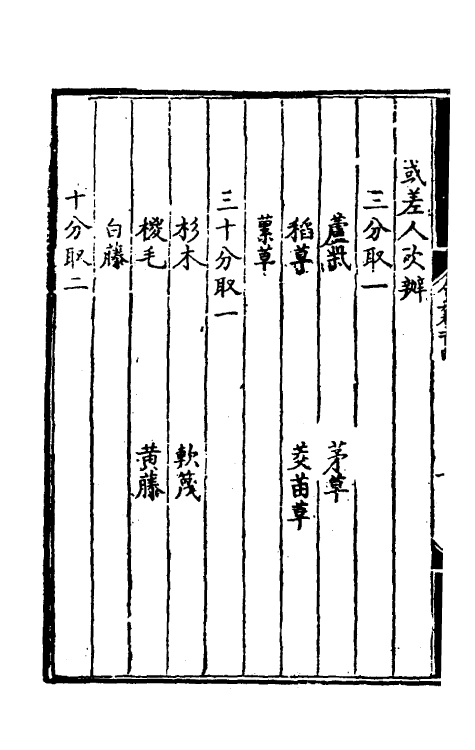 或差人砍辦
三分取一
蘆柴　茅草
稻草　茭苗草
藁草
三十分取一
杉木　軟篾
椶毛　黄藤
白藤
十分取二